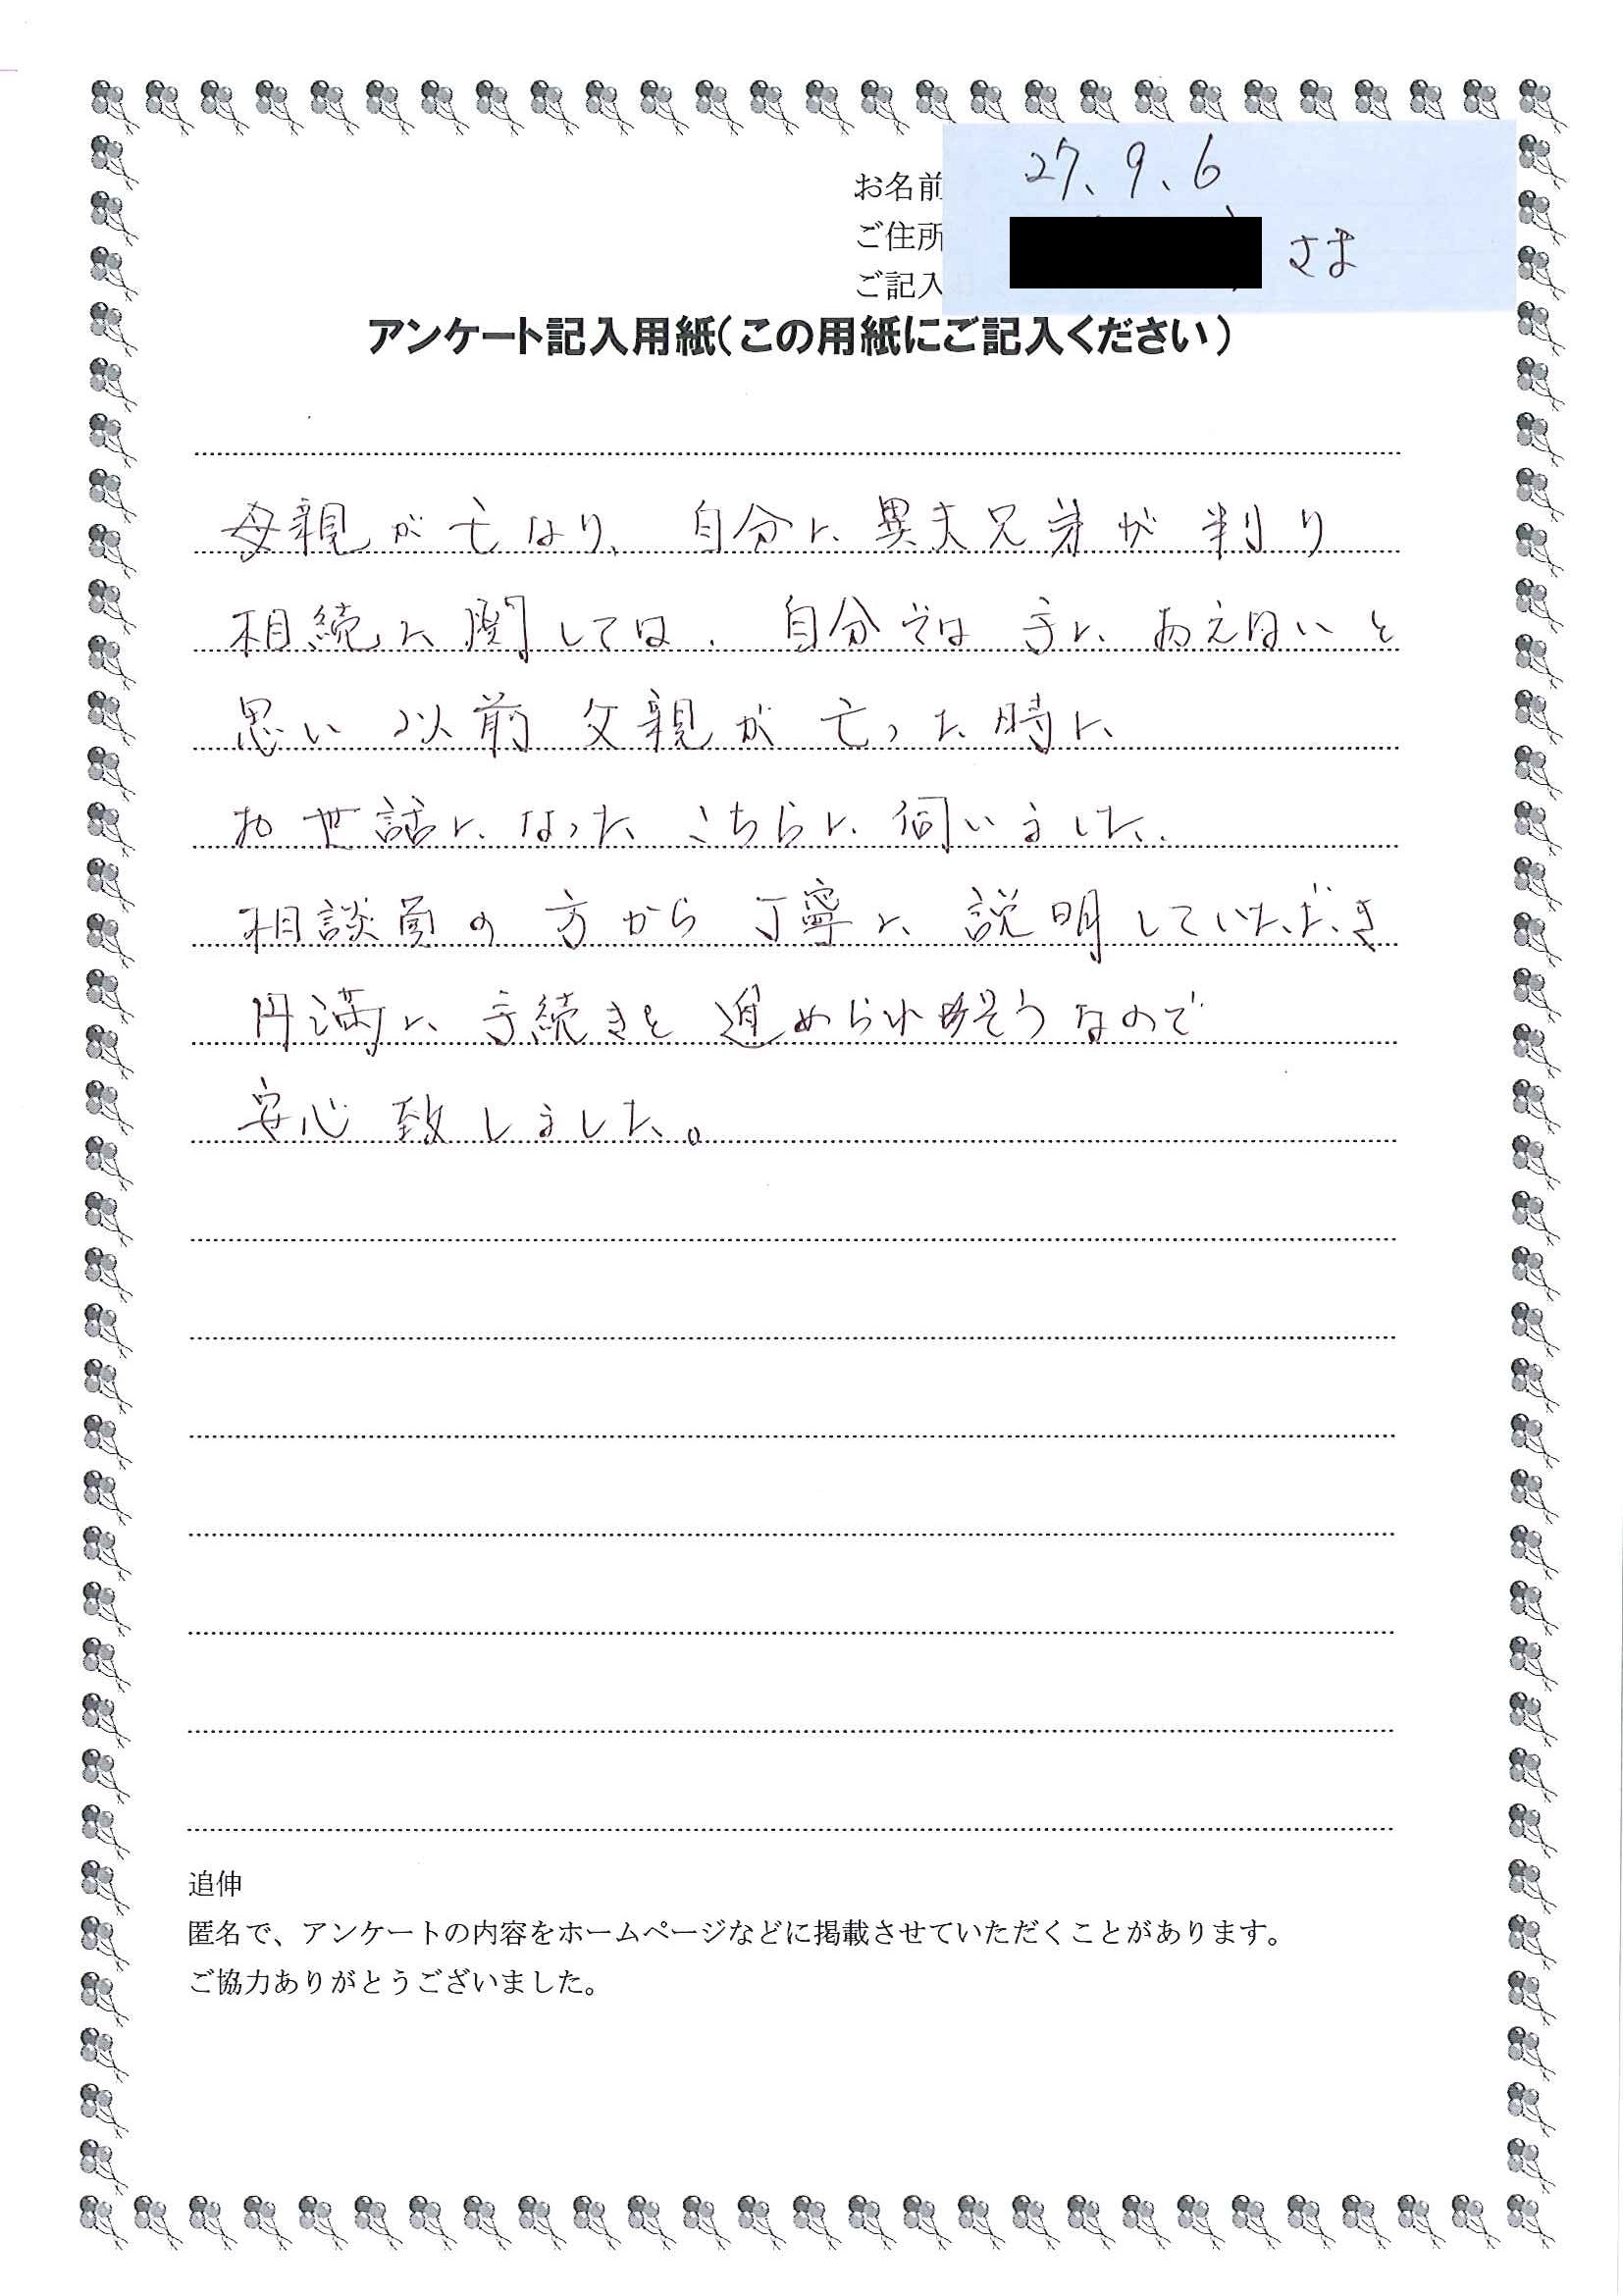 27、9、6
お名前
ご住所
さま
ご記入
アンケート記入用紙(この用紙にご記入ください)
母親が亡なり、自分に異夫兄弟が判り
相続に関しては、自分では手におえないと
思い以前父親が亡った時に
お世話になったこちらに伺いました。
相談員の方から丁寧に説明していただき
円満に手続きを進められそうなので
安心致しました。
追伸
匿名で、アンケートの内容をホームページなどに掲載させていただくことがあります。
ご協力ありがとうございました。